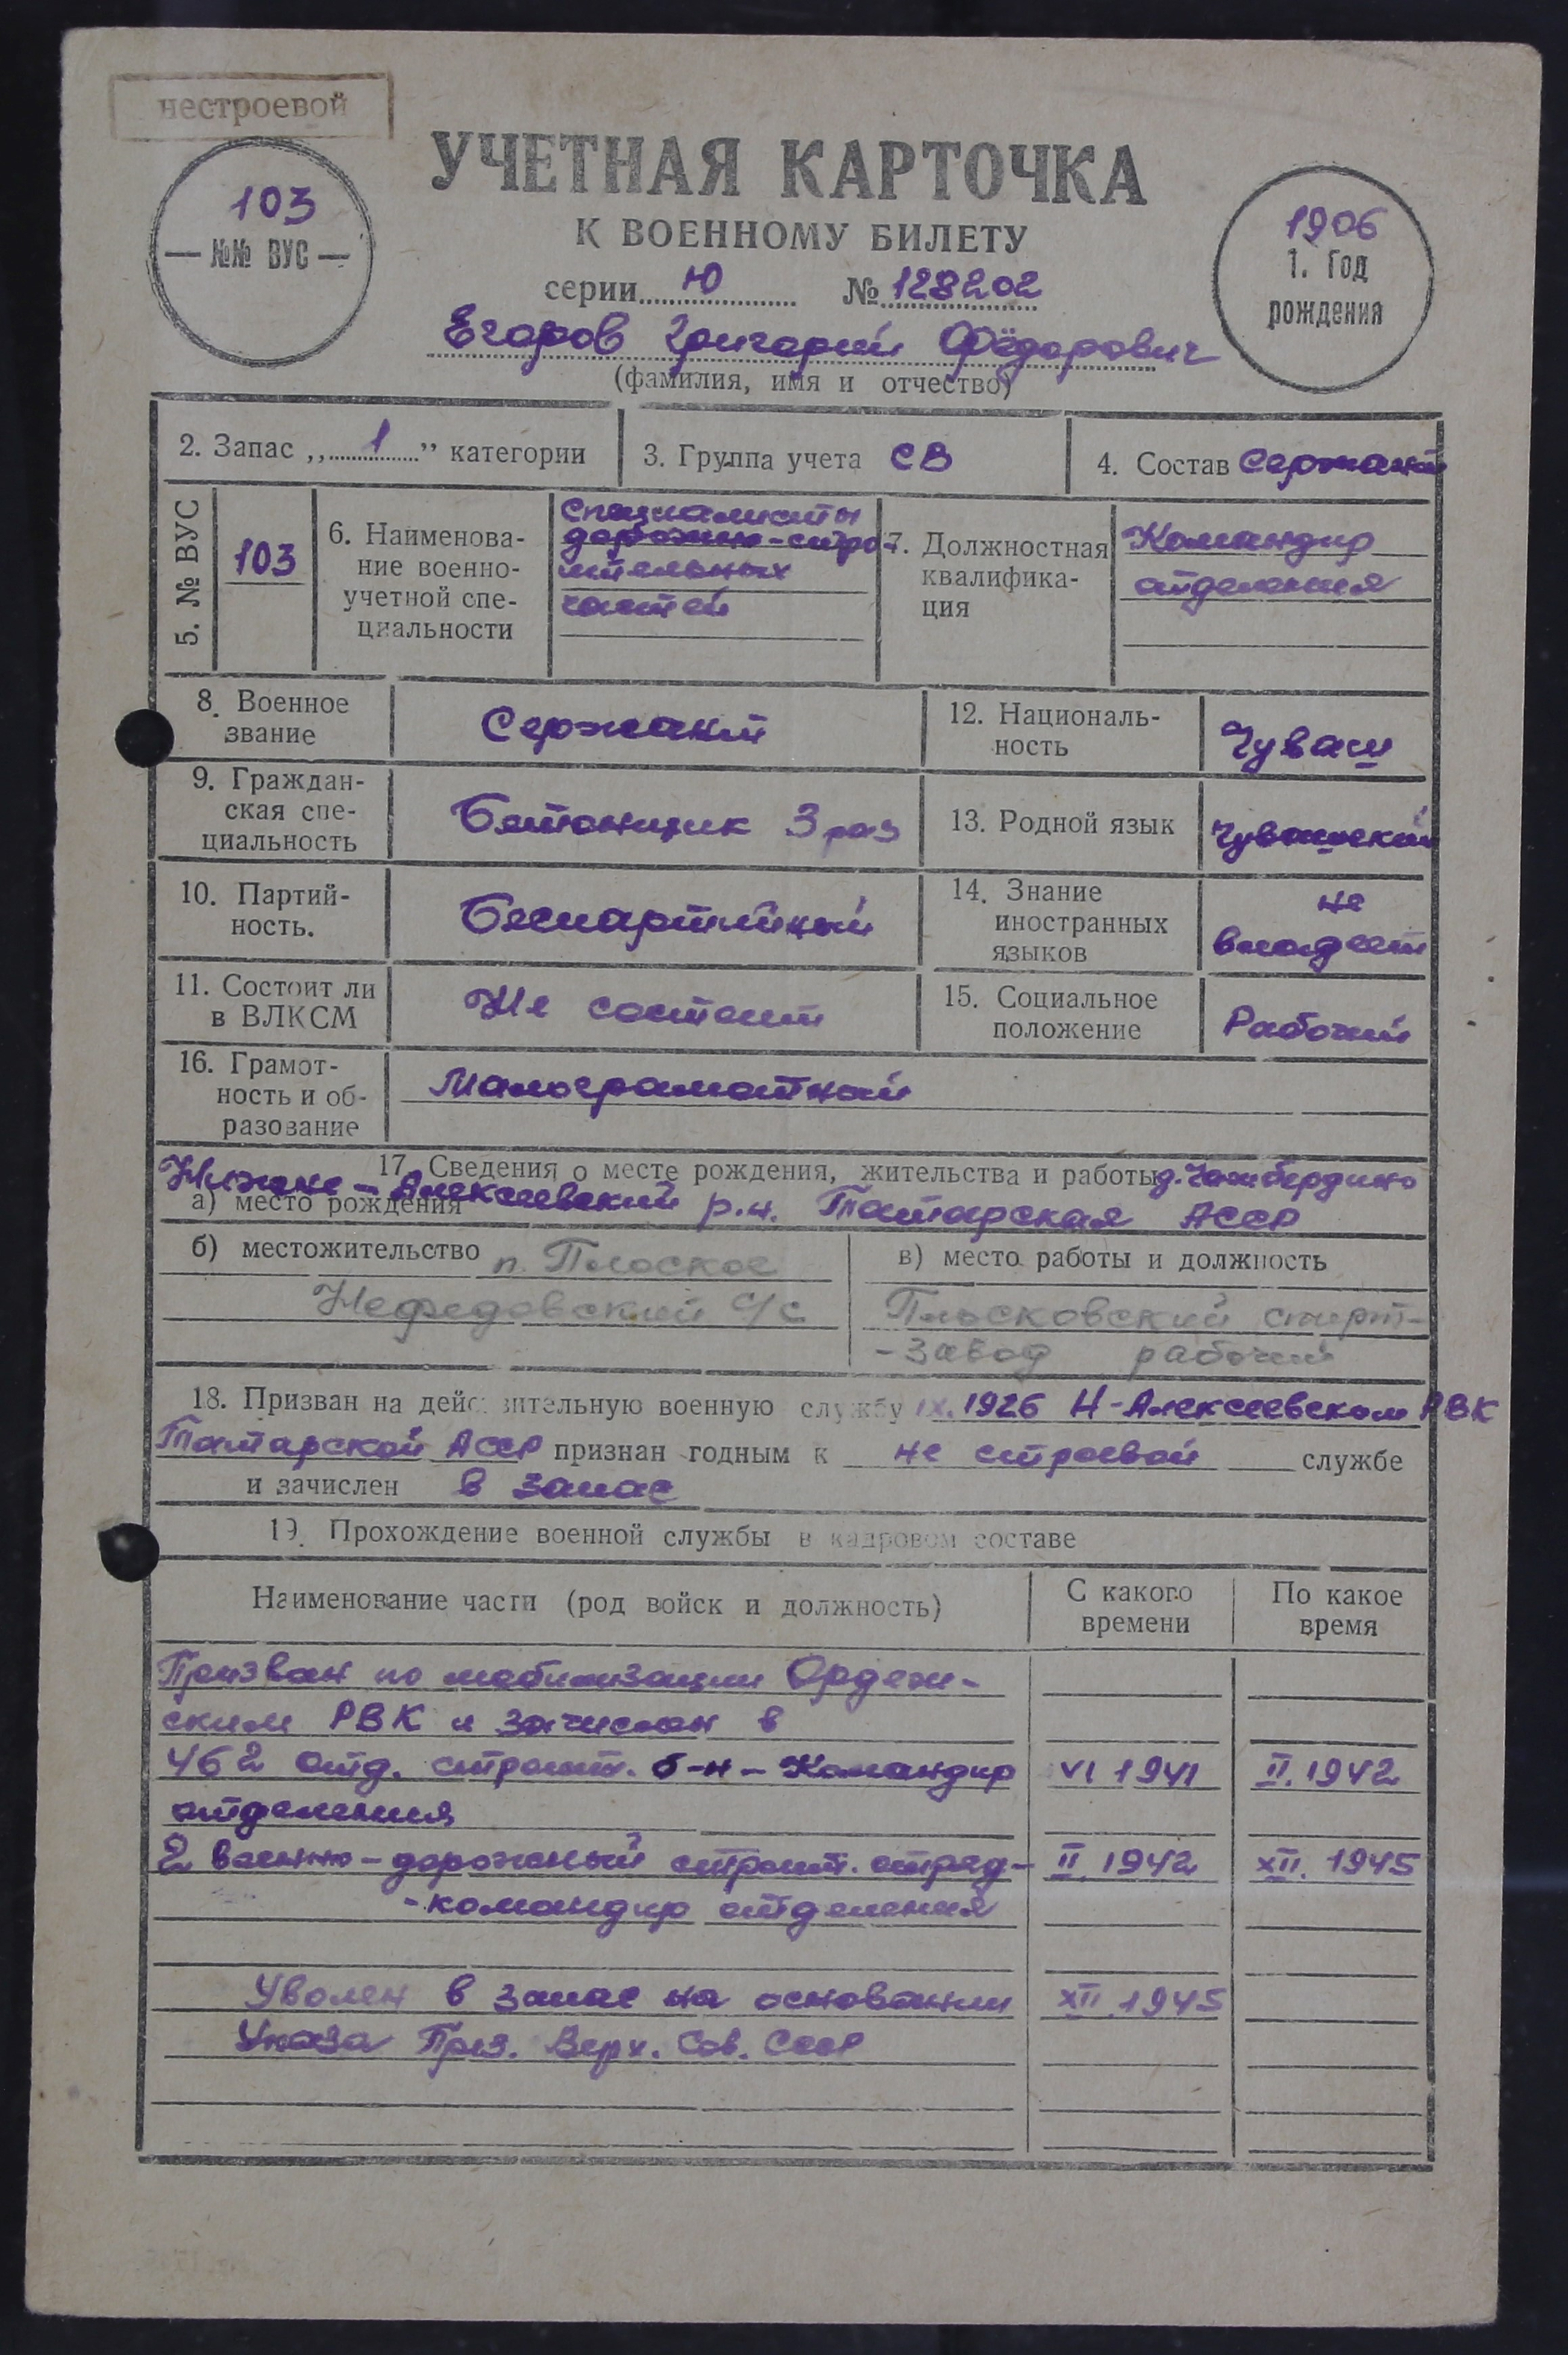 нестроевой
УЧЕТНАЯ КАРТОЧКА
К ВОЕННОМУ БИЛЕТУ
103
— №№ ВУС —
1906
1. Год
рождения
серии Ю № 128202
Егоров Григорий Фёдорович
(фамилия, имя и отчество)
2. Запас „ 1 ” категории
3. Группа учета СВ
4. Состав Сержант
5. № ВУС
103
6. Наименова-
ние военно-
учетной спе-
циальности
Специалисты
дорожно-стро-
ительных
частей
7. Должностная
квалифика-
ция
Командир
отделения
8. Военное
звание
Сержант
12. Националь-
ность
Чуваш
9. Граждан-
ская спе-
циальность
Бетонщик 3 раз
13. Родной язык
Чувашский
10. Партий-
ность.
Беспартийный
14. Знание
иностранных
языков
не
владеет
11. Состоит ли
в ВЛКСМ
Не состоит
15. Социальное
положение
Рабочий
16. Грамот-
ность и об-
разование
Малограмотный
17. Сведения о месте рождения, жительства и работы д.
Нижне-Алексеевский р.н. Татарская АССР
а) место рождения
б) местожительство п. Плоское
Нефедовский с/с
в) место работы и должность
Плосковский спирт-
-завод рабочий
18. Призван на действительную военную службу IX.1926 Н-Алексеевском РВК
Татарской АССР признан годным к не строевой службе
и зачислен в запас
19. Прохождение военной службы в кадровом составе
Наименование части (род войск и должность)
С какого
времени
По какое
время
Призван по мобилизации
ским РВК и зачислен в
462 отд. строит. б-н - Командир VI 1941 II.1942
отделения
2 военно-дорожный строит. отряд- II.1942 XII.1945
-командир отделения
Уволен в запас на основании XII 1945
Указа През. Верх. Сов. СССР